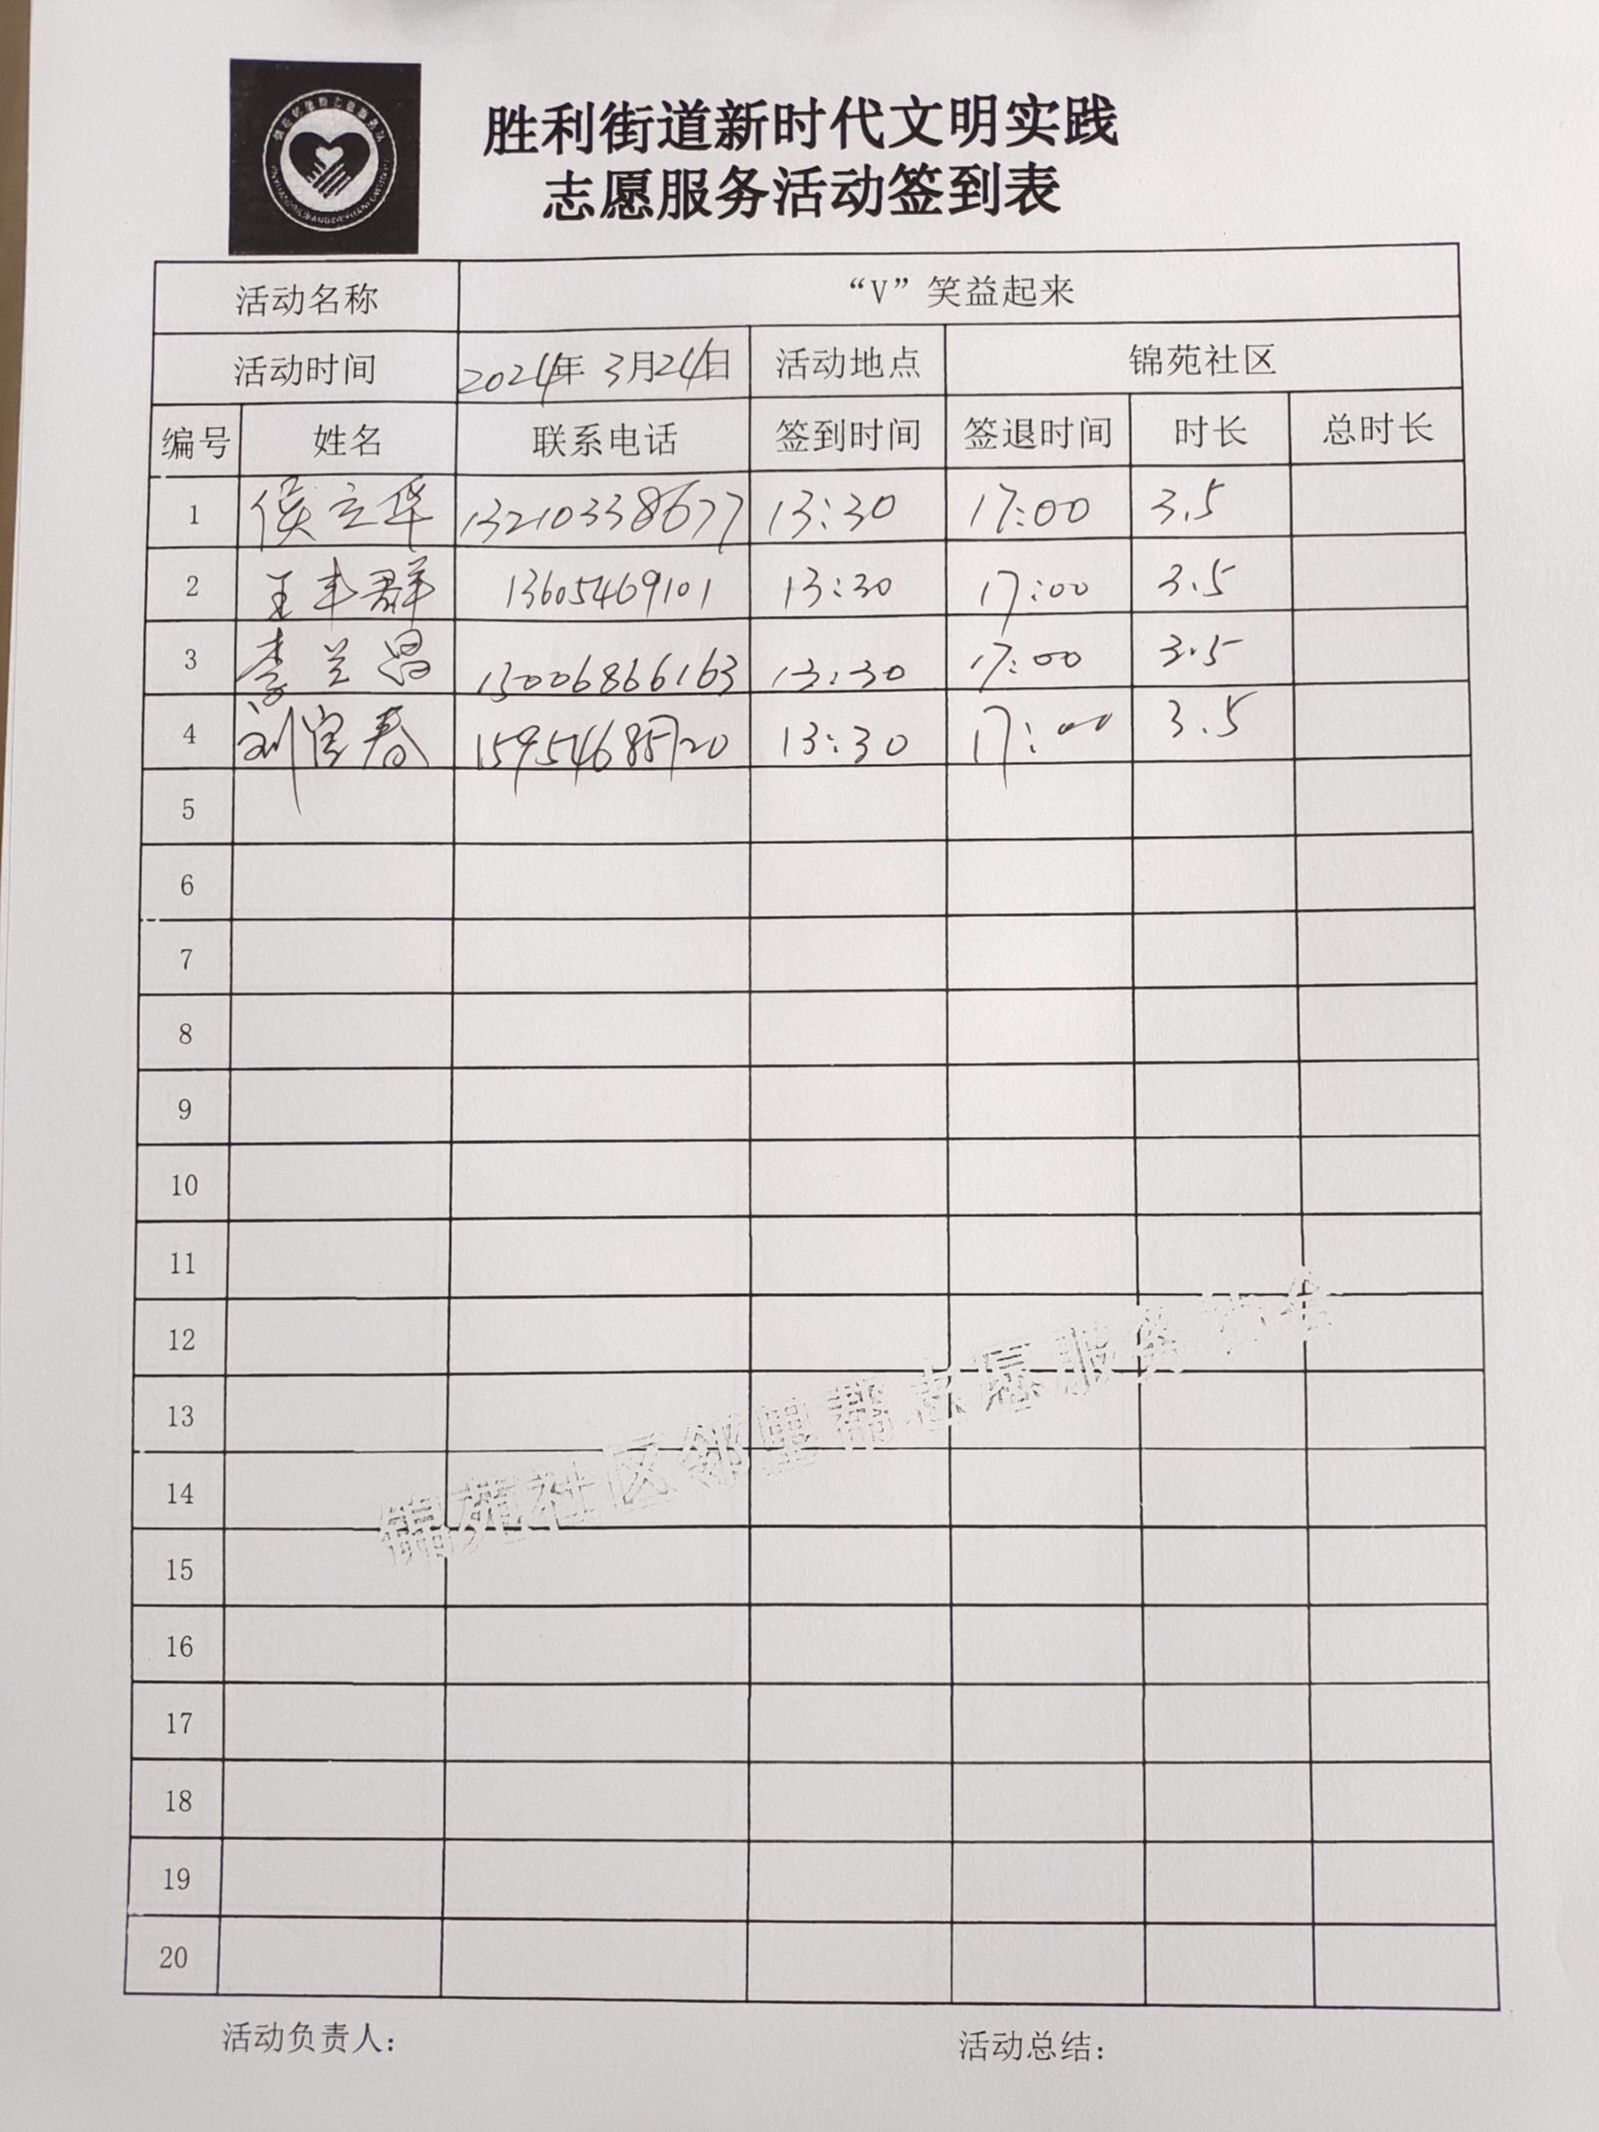 胜利街道新时代文明实践
志愿服务活动签到表
活动名称 “V”笑益起来
活动时间 2024年 3月24日 活动地点 锦苑社区
编号 姓名 联系电话 签到时间 签退时间 时长 总时长
1 侯立华 13210338677 13:30 17:00 3.5
2 王丰群 13605469101 13:30 17:00 3.5
3 李兰昌 15006866163 13:30 17:00 3.5
4 刘宝春 15954685720 13:30 17:00 3.5
5
6
7
8
9
10
11
12
13
14
15
16
17
18
19
20
锦苑社区邻里帮志愿服务协会
活动负责人： 活动总结：